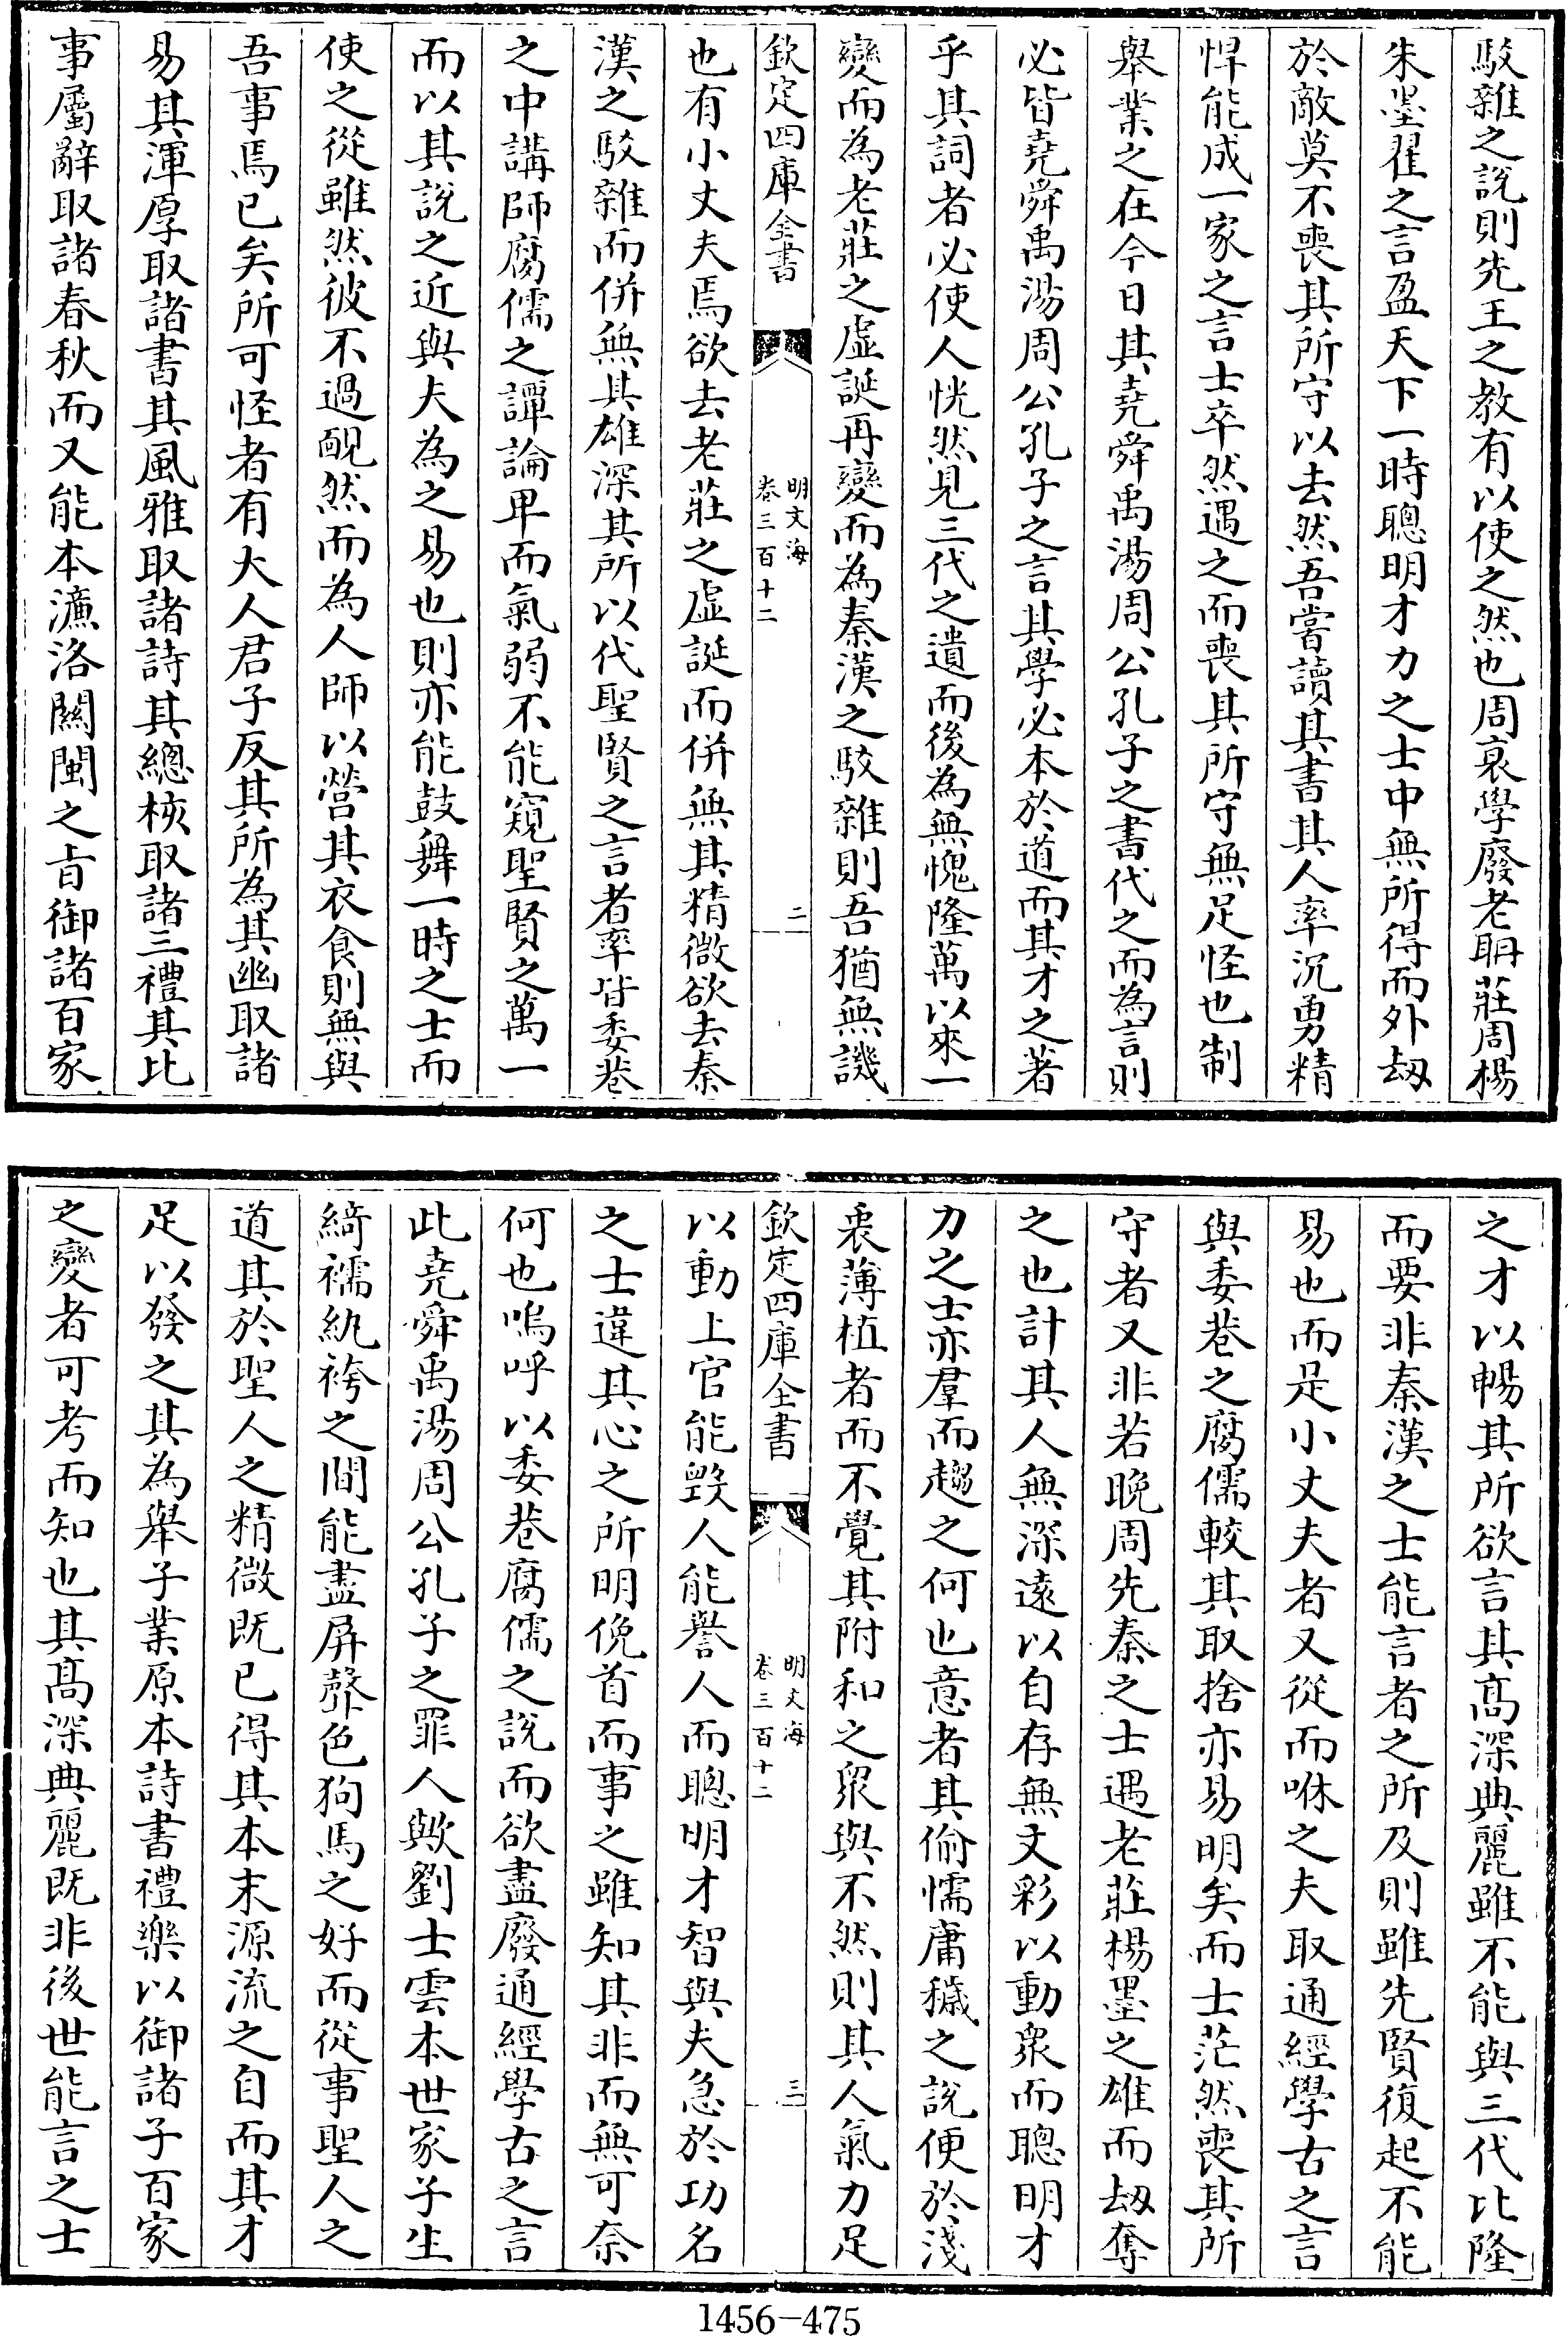 駁雜之說則先王之教有以使之然也周衰學廢老聃莊周楊
朱墨翟之言盈天下一時聰明才力之士中無所得而外刼
於敵莫不喪其所守以去然吾嘗讀其書其人率沉勇精
悍能成一家之言士卒然遇之而喪其所守無足怪也制
舉業之在今日其堯舜禹湯周公孔子之書代之而為言則
必皆堯舜禹湯周公孔子之言其學必本於道而其才之著
乎其詞者必使人恍然見三代之遺而後為無愧隆萬以來一
變而為老莊之虛誕再變而為秦漢之駁雜則吾猶無譏
欽定四庫全書
明文海
卷三百十二
二
也有小丈夫焉欲去老莊之虛誕而併無其精微欲去秦
漢之駁雜而併無其雄深其所以代聖賢之言者率皆委巷
之中講師腐儒之譚論卑而氣弱不能窺聖賢之萬一
而以其說之近與夫為之易也則亦能鼓舞一時之士而
使之從雖然彼不過靦然而為人師以營其衣食則無與
吾事焉已矣所可怪者有大人君子反其所為其幽取諸
易其渾厚取諸書其風雅取諸詩其總核取諸三禮其比
事屬辭取諸春秋而又能本濂洛關閩之旨御諸百家
之才以暢其所欲言其高深典麗雖不能與三代比隆
而要非秦漢之士能言者之所及則雖先賢復起不能
易也而是小丈夫者又從而咻之夫取通經學古之言
與委巷之腐儒較其取捨亦易明矣而士茫然喪其所
守者又非若晚周先秦之士遇老莊楊墨之雄而刼奪
之也計其人無深遠以自存無文彩以動衆而聰明才
力之士亦羣而趨之何也意者其偷懦庸穢之說便於淺
衷薄植者而不覺其附和之衆與不然則其人氣力足
欽定四庫全書
明文海
卷三百十二
三
以動上官能毀人能譽人而聰明才智與夫急於功名
之士違其心之所明俛首而事之雖知其非而無可奈
何也嗚呼以委巷腐儒之說而欲盡廢通經學古之言
此堯舜禹湯周公孔子之罪人歟劉士雲本世家子生
綺襦紈袴之間能盡屏聲色狗馬之好而從事聖人之
道其於聖人之精微既已得其本末源流之自而其才
足以發之其為舉子業原本詩書禮樂以御諸子百家
之變者可考而知也其高深典麗既非後世能言之士
1456-475